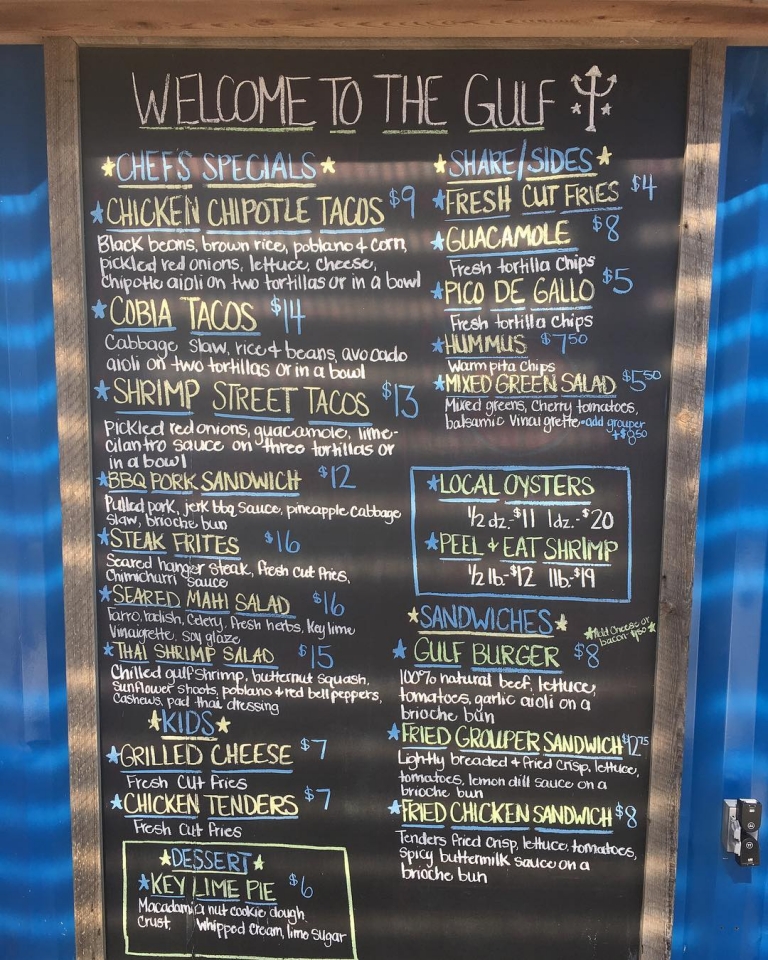 WELCOME TO THE GULF
CHEF'S SPECIALS
CHICKEN CHIPOTLE TACOS $9
Black beans, brown rice, poblano & corn,
pickled red onions, lettuce, cheese,
chipotle aioli on two tortillas or in a bowl
COBIA TACOS $14
Cabbage slaw, rice & beans, avocado
aioli on two tortillas or in a bowl
SHRIMP STREET TACOS $13
Pickled red onions, guacamole, lime-
cilantro sauce on three tortillas or
in a bowl
BBQ PORK SANDWICH $12
Pulled pork, jerk bbq sauce, pineapple cabbage
slaw, brioche bun
STEAK FRITES $16
Seared hanger steak, fresh cut fries,
Chimichurri sauce
SEARED MAHI SALAD $16
Farro, radish, celery, fresh herbs, Key lime
Vinaigrette, soy glaze
THAI SHRIMP SALAD $15
Chilled gulf shrimp, butternut squash,
sunflower shoots, poblano & red bell peppers,
cashews, pad thai dressing
KIDS
GRILLED CHEESE $7
Fresh Cut fries
CHICKEN TENDERS $7
Fresh Cut fries
DESSERT
KEY LIME PIE $6
Macadamia nut cookie dough
crust, whipped cream, lime sugar
SHARE/SIDES
FRESH CUT FRIES $4
GUACAMOLE $8
Fresh tortilla chips
PICO DE GALLO $5
Fresh tortilla chips
HUMMUS $7.50
Warm pita chips
MIXED GREEN SALAD $5.50
Mixed greens, cherry tomatoes,
balsamic vinaigrette - add grouper
+$8.50
LOCAL OYSTERS
1/2 dz.-$11 1dz.-$20
PEEL & EAT SHRIMP
1/2 lb-$12 1lb-$19
SANDWICHES
Add cheese or
bacon $1.50
GULF BURGER $8
100% natural beef, lettuce,
tomatoes, garlic aioli on a
brioche bun
FRIED GROUPER SANDWICH $12.75
Lightly breaded & fried crisp, lettuce,
tomatoes, lemon dill sauce on a
brioche bun
FRIED CHICKEN SANDWICH $8
Tenders fried crisp, lettuce, tomatoes,
spicy buttermilk sauce on a
brioche bun